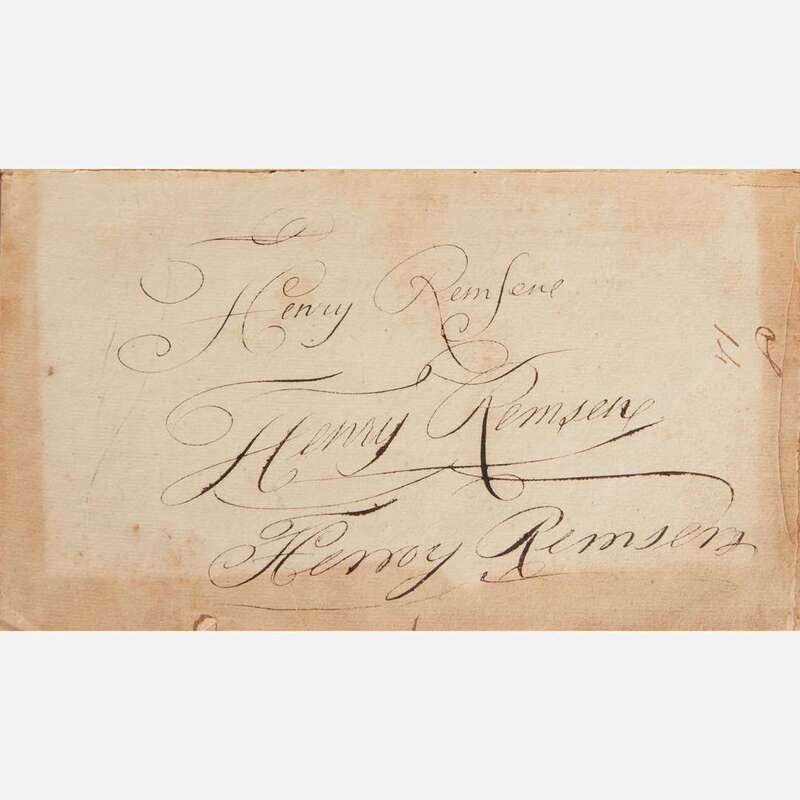 Henry Remsene
Henry Remsene
Henroy Remsen
14